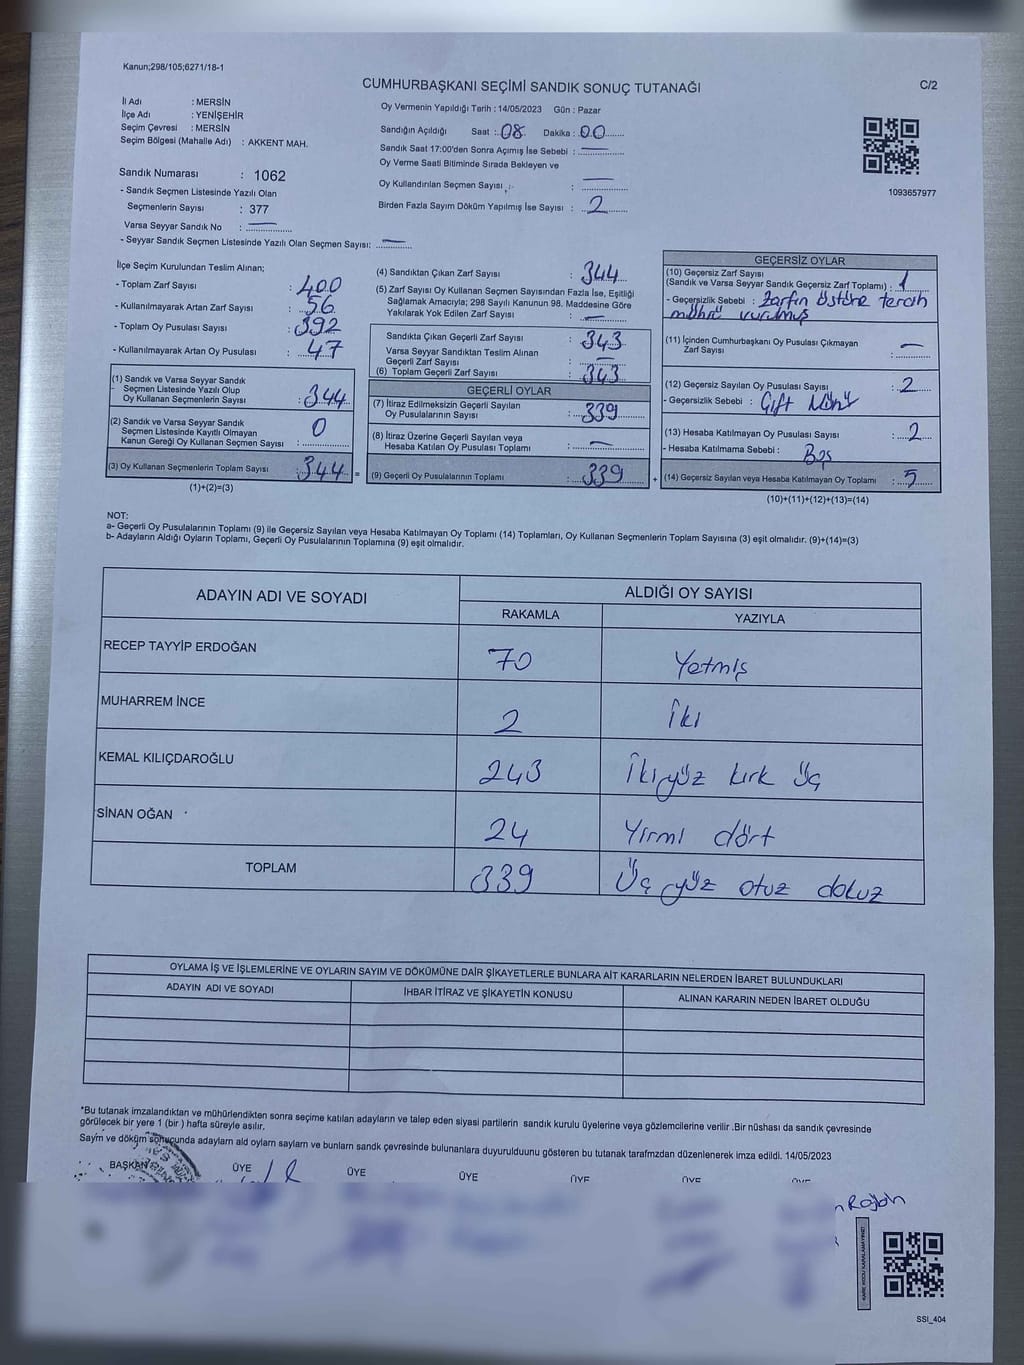 Kanun;298/105;6271/18-1
CUMHURBAŞKANI SEÇİMİ SANDIK SONUÇ TUTANAĞI
C/2
İl Adı : MERSİN
İlçe Adı : YENİŞEHİR
Seçim Çevresi : MERSİN
Seçim Bölgesi (Mahalle Adı) : AKKENT MAH.
Oy Vermenin Yapıldığı Tarih : 14/05/2023 Gün : Pazar
Sandığın Açıldığı Saat :.08. Dakika : 00
Sandık Saat 17:00'den Sonra Açımış İse Sebebi : —
Oy Verme Saati Bitiminde Sırada Bekleyen ve
Oy Kullandırılan Seçmen Sayısı : —
Birden Fazla Sayım Döküm Yapılmış İse Sayısı : 2
1093657977
Sandık Numarası : 1062
- Sandık Seçmen Listesinde Yazılı Olan
Seçmenlerin Sayısı : 377
Varsa Seyyar Sandık No : —
- Seyyar Sandık Seçmen Listesinde Yazılı Olan Seçmen Sayısı: —
İlçe Seçim Kurulundan Teslim Alınan;
- Toplam Zarf Sayısı : 400
- Kullanılmayarak Artan Zarf Sayısı : 56
- Toplam Oy Pusulası Sayısı : 392
- Kullanılmayarak Artan Oy Pusulası : 47
(1) Sandık ve Varsa Seyyar Sandık
Seçmen Listesinde Yazılı Olup
Oy Kullanan Seçmenlerin Sayısı : 344
(2) Sandık ve Varsa Seyyar Sandık
Seçmen Listesinde Kayıtlı Olmayan
Kanun Gereği Oy Kullanan Seçmen Sayısı : 0
(3) Oy Kullanan Seçmenlerin Toplam Sayısı : 344 =
(1)+(2)=(3)
(4) Sandıktan Çıkan Zarf Sayısı : 344
(5) Zarf Sayısı Oy Kullanan Seçmen Sayısından Fazla İse, Eşitliği
Sağlamak Amacıyla; 298 Sayılı Kanunun 98. Maddesine Göre
Yakılarak Yok Edilen Zarf Sayısı : —
Sandıkta Çıkan Geçerli Zarf Sayısı : 343
Varsa Seyyar Sandıktan Teslim Alınan
Geçerli Zarf Sayısı : —
(6) Toplam Geçerli Zarf Sayısı : 343
GEÇERLİ OYLAR
(7) İtiraz Edilmeksizin Geçerli Sayılan
Oy Pusulalarının Sayısı : 339
(8) İtiraz Üzerine Geçerli Sayılan veya
Hesaba Katılan Oy Pusulası Toplamı : —
(9) Geçerli Oy Pusulalarının Toplamı : 339 +
GEÇERSİZ OYLAR
(10) Geçersiz Zarf Sayısı
(Sandık ve Varsa Seyyar Sandık Geçersiz Zarf Toplamı) : 1
- Geçersizlik Sebebi : Zarfın üstüne tercih
mührü vurulmuş
(11) İçinden Cumhurbaşkanı Oy Pusulası Çıkmayan
Zarf Sayısı : —
(12) Geçersiz Sayılan Oy Pusulası Sayısı : 2
- Geçersizlik Sebebi : Çift Mühür
(13) Hesaba Katılmayan Oy Pusulası Sayısı : 2
- Hesaba Katılmama Sebebi : Boş
(14) Geçersiz Sayılan veya Hesaba Katılmayan Oy Toplamı : 5
(10)+(11)+(12)+(13)=(14)
NOT:
a- Geçerli Oy Pusulalarının Toplamı (9) ile Geçersiz Sayılan veya Hesaba Katılmayan Oy Toplamı (14) Toplamları, Oy Kullanan Seçmenlerin Toplam Sayısına (3) eşit olmalıdır. (9)+(14)=(3)
b- Adayların Aldığı Oyların Toplamı, Geçerli Oy Pusulalarının Toplamına (9) eşit olmalıdır.
ADAYIN ADI VE SOYADI
ALDIĞI OY SAYISI
RAKAMLA YAZIYLA
RECEP TAYYİP ERDOĞAN 70 Yetmiş
MUHARREM İNCE 2 İki
KEMAL KILIÇDAROĞLU 243 İkiyüz kırk üç
SİNAN OĞAN 24 Yirmi dört
TOPLAM 339 Üç yüz otuz dokuz
OYLAMA İŞ VE İŞLEMLERİNE VE OYLARIN SAYIM VE DÖKÜMÜNE DAİR ŞİKAYETLERLE BUNLARA AİT KARARLARIN NELERDEN İBARET BULUNDUKLARI
ADAYIN ADI VE SOYADI İHBAR İTİRAZ VE ŞİKAYETİN KONUSU ALINAN KARARIN NEDEN İBARET OLDUĞU
*Bu tutanak imzalandıktan ve mühürlendikten sonra seçime katılan adayların ve talep eden siyasi partilerin sandık kurulu üyelerine veya gözlemcilerine verilir .Bir nüshası da sandık çevresinde
görülecek bir yere 1 (bir ) hafta süreyle asılır.
Sayım ve döküm sonuçunda adayların ald oyların sayların ve bunların sandık çevresinde bulunanlara duyurulduunu gösteren bu tutanak tarafmzdan düzenlenerek imza edildi. 14/05/2023
BAŞKAN ÜYE ÜYE ÜYE ÜYE ÜYE
KARE KODU KARALAMAYINIZ!
SSI_404